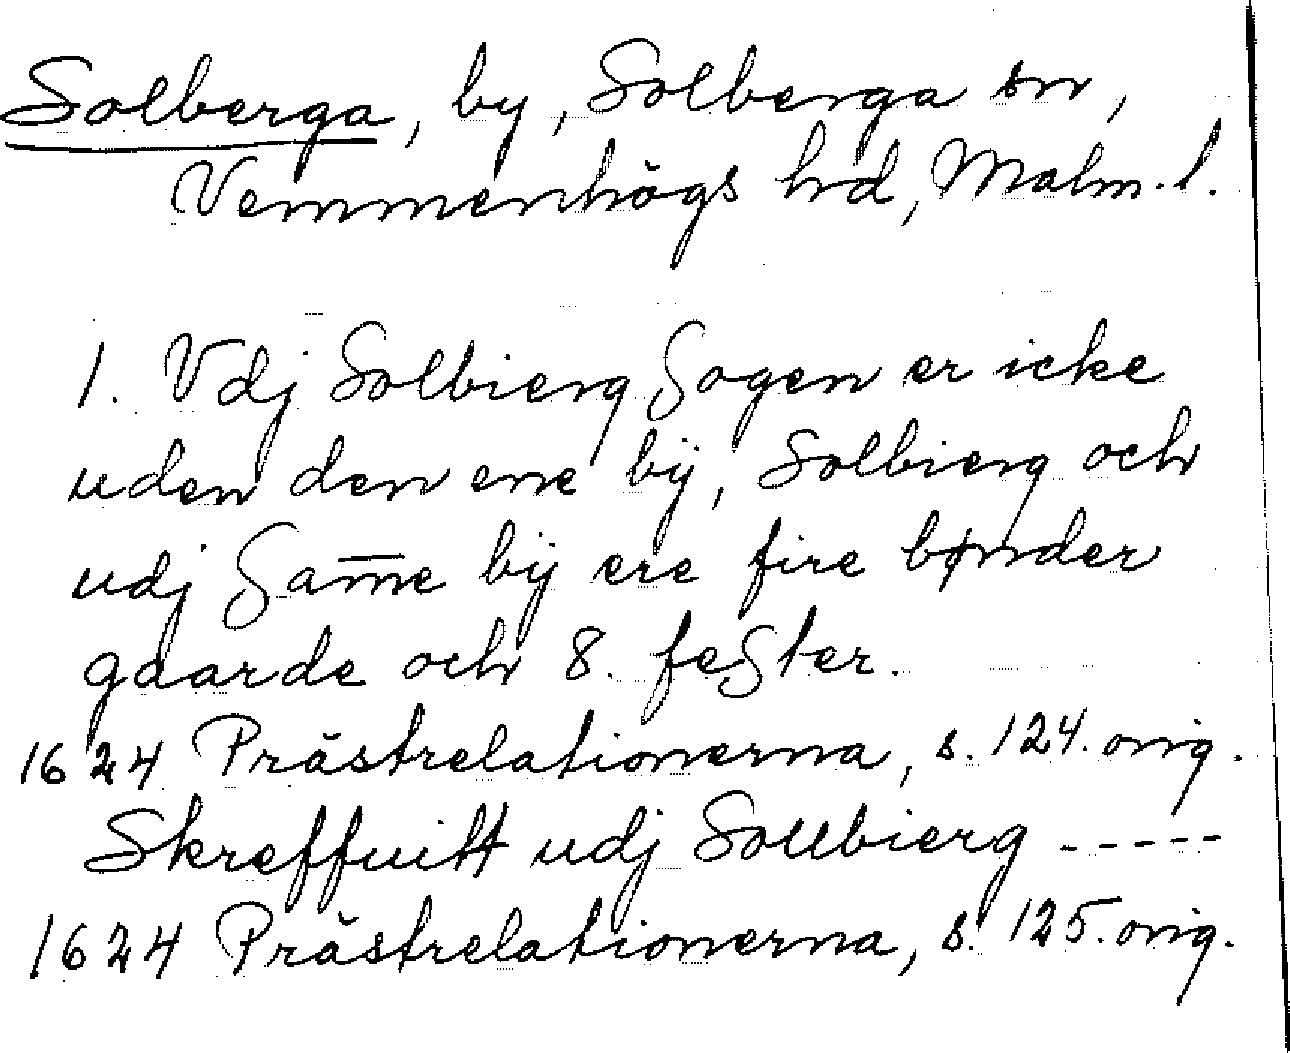 Solberga, by, Solberga sn,
Vemmenhögs hd, Malm. l.
1. Vdj Solbierg Sogen er icke
uden den ene bÿ, Solbierg och
udj Sam̄e bÿ ere fire bønder
gaarde och 8. feSter.
1624 Prästrelationerna, s. 124. orig.
Skreffuitt udj Sollbierg -----
1624 Prästrelationerna, s. 125. orig.